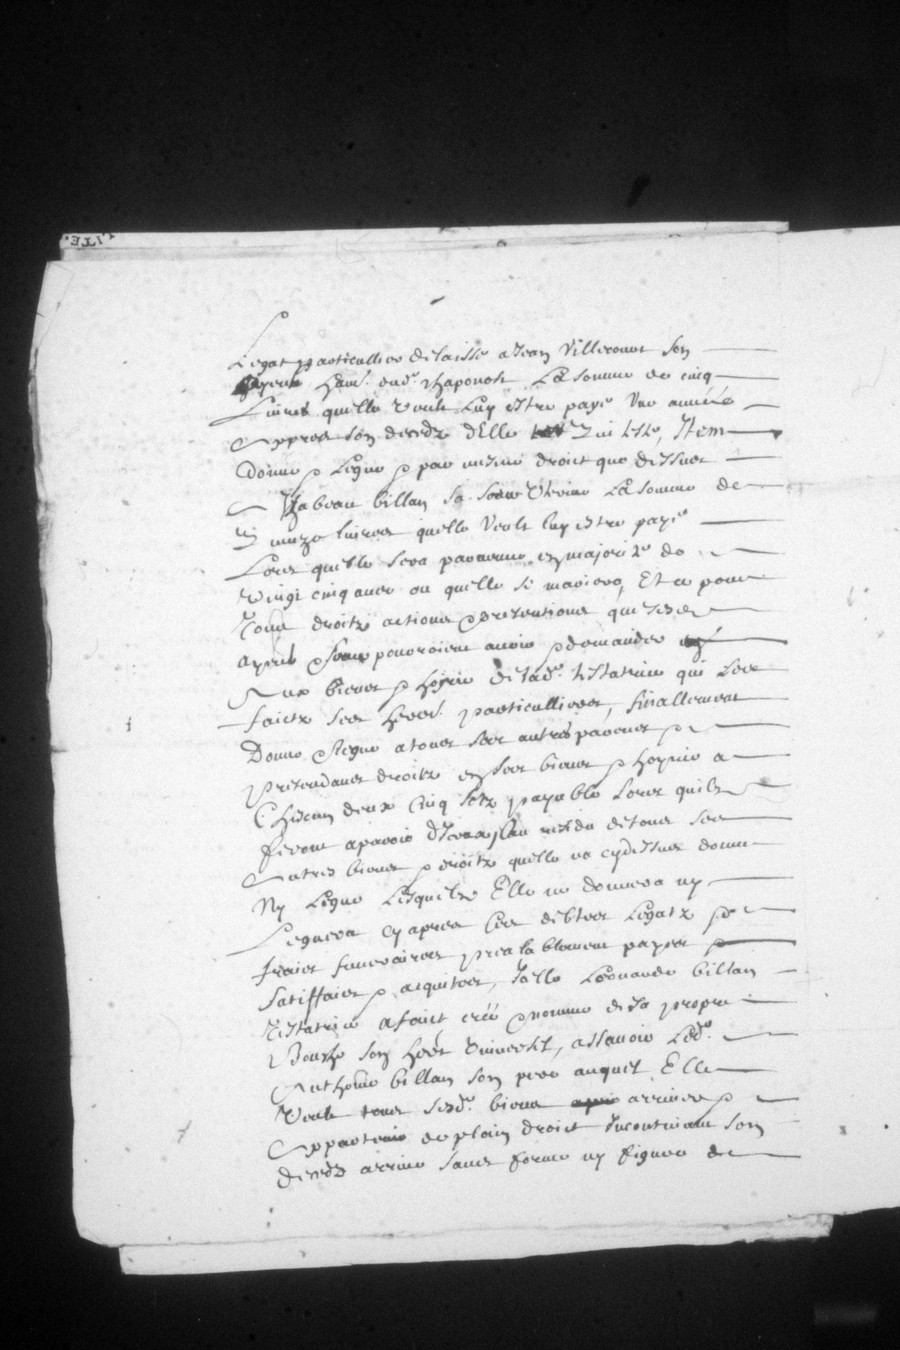 Legat particullier delaisse a Jean Villecourt son
habit. dud. Chaponost La somme de cinq
Livres quelle Veult Luy estre paye Une année
Appres son deceds d'Elle Testa, Item
Donne & Legue & par mesme droict que dessus
Ysabeau billan sa soeur Uterine La somme de
quinze livres quelle Veult luy estre paye
Lors quelle sera parvenue en majorité de
Vingt cinq ans ou quelle se mariera, Et ce pour
Tous droitz actions & pretentions que
aprés pourroient avoir & demander
Aux biens & hoyrie de lad. testatrice qui Les
faictz ses herers. particulliers, finallement
Donne & legue a tous ses autres parens &
pretendans droitz en ses biens & hoyrie a
Chascun deux Cinq solz payable Lors quilz
feront aparoir
Autres biens & droitz quelle na cydessus donne
Ny Legue Lesquelz Elle ne donnera ny
Leguera cy apres Ses debtes Legatz &
fraies funeraires prealablement payes &
Satiffaies & acquites, Jcelle Leonarde billan
testatrice a faict creé & nomme de sa propre
Bouche son herer Universel, assavoir Led.
Anthoine billan son pere auquel Elle
Veult tous sesd. biens arriver &
Appartenir de plain droict Incontinant son
deceds arrive sans forme ny figure de
LITE.